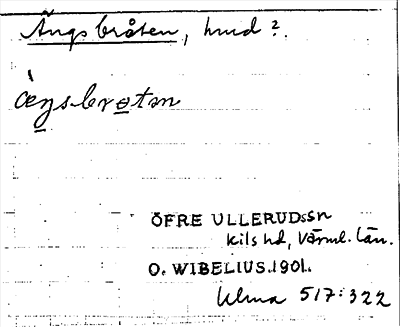 Ängsbråten, hmd?.
ængsbrotn
ÖFRE ULLERUDssn
Kils hd, Värml. län.
O. WIBELIUS.1901.
Ulma 517:322